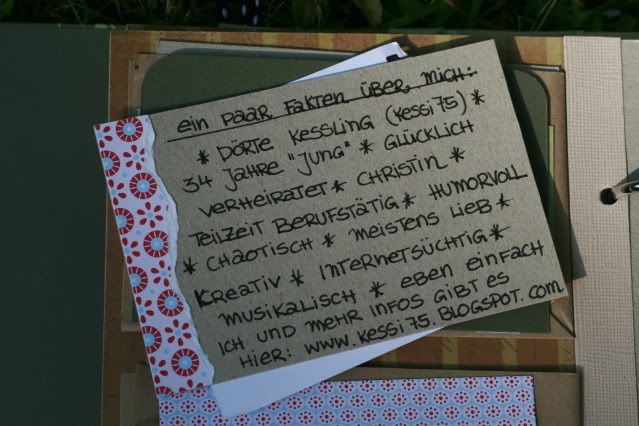 ein paar Fakten über mich:
* Dörte Kessling (Kessi75) *
34 Jahre "jung" * Glücklich
verheiratet * Christin *
Teilzeit berufstätig * humorvoll
* chaotisch * meistens lieb *
kreativ * internetsüchtig *
musikalisch * eben einfach
ich und mehr Infos gibt es
hier: www.kessi75.blogspot.com